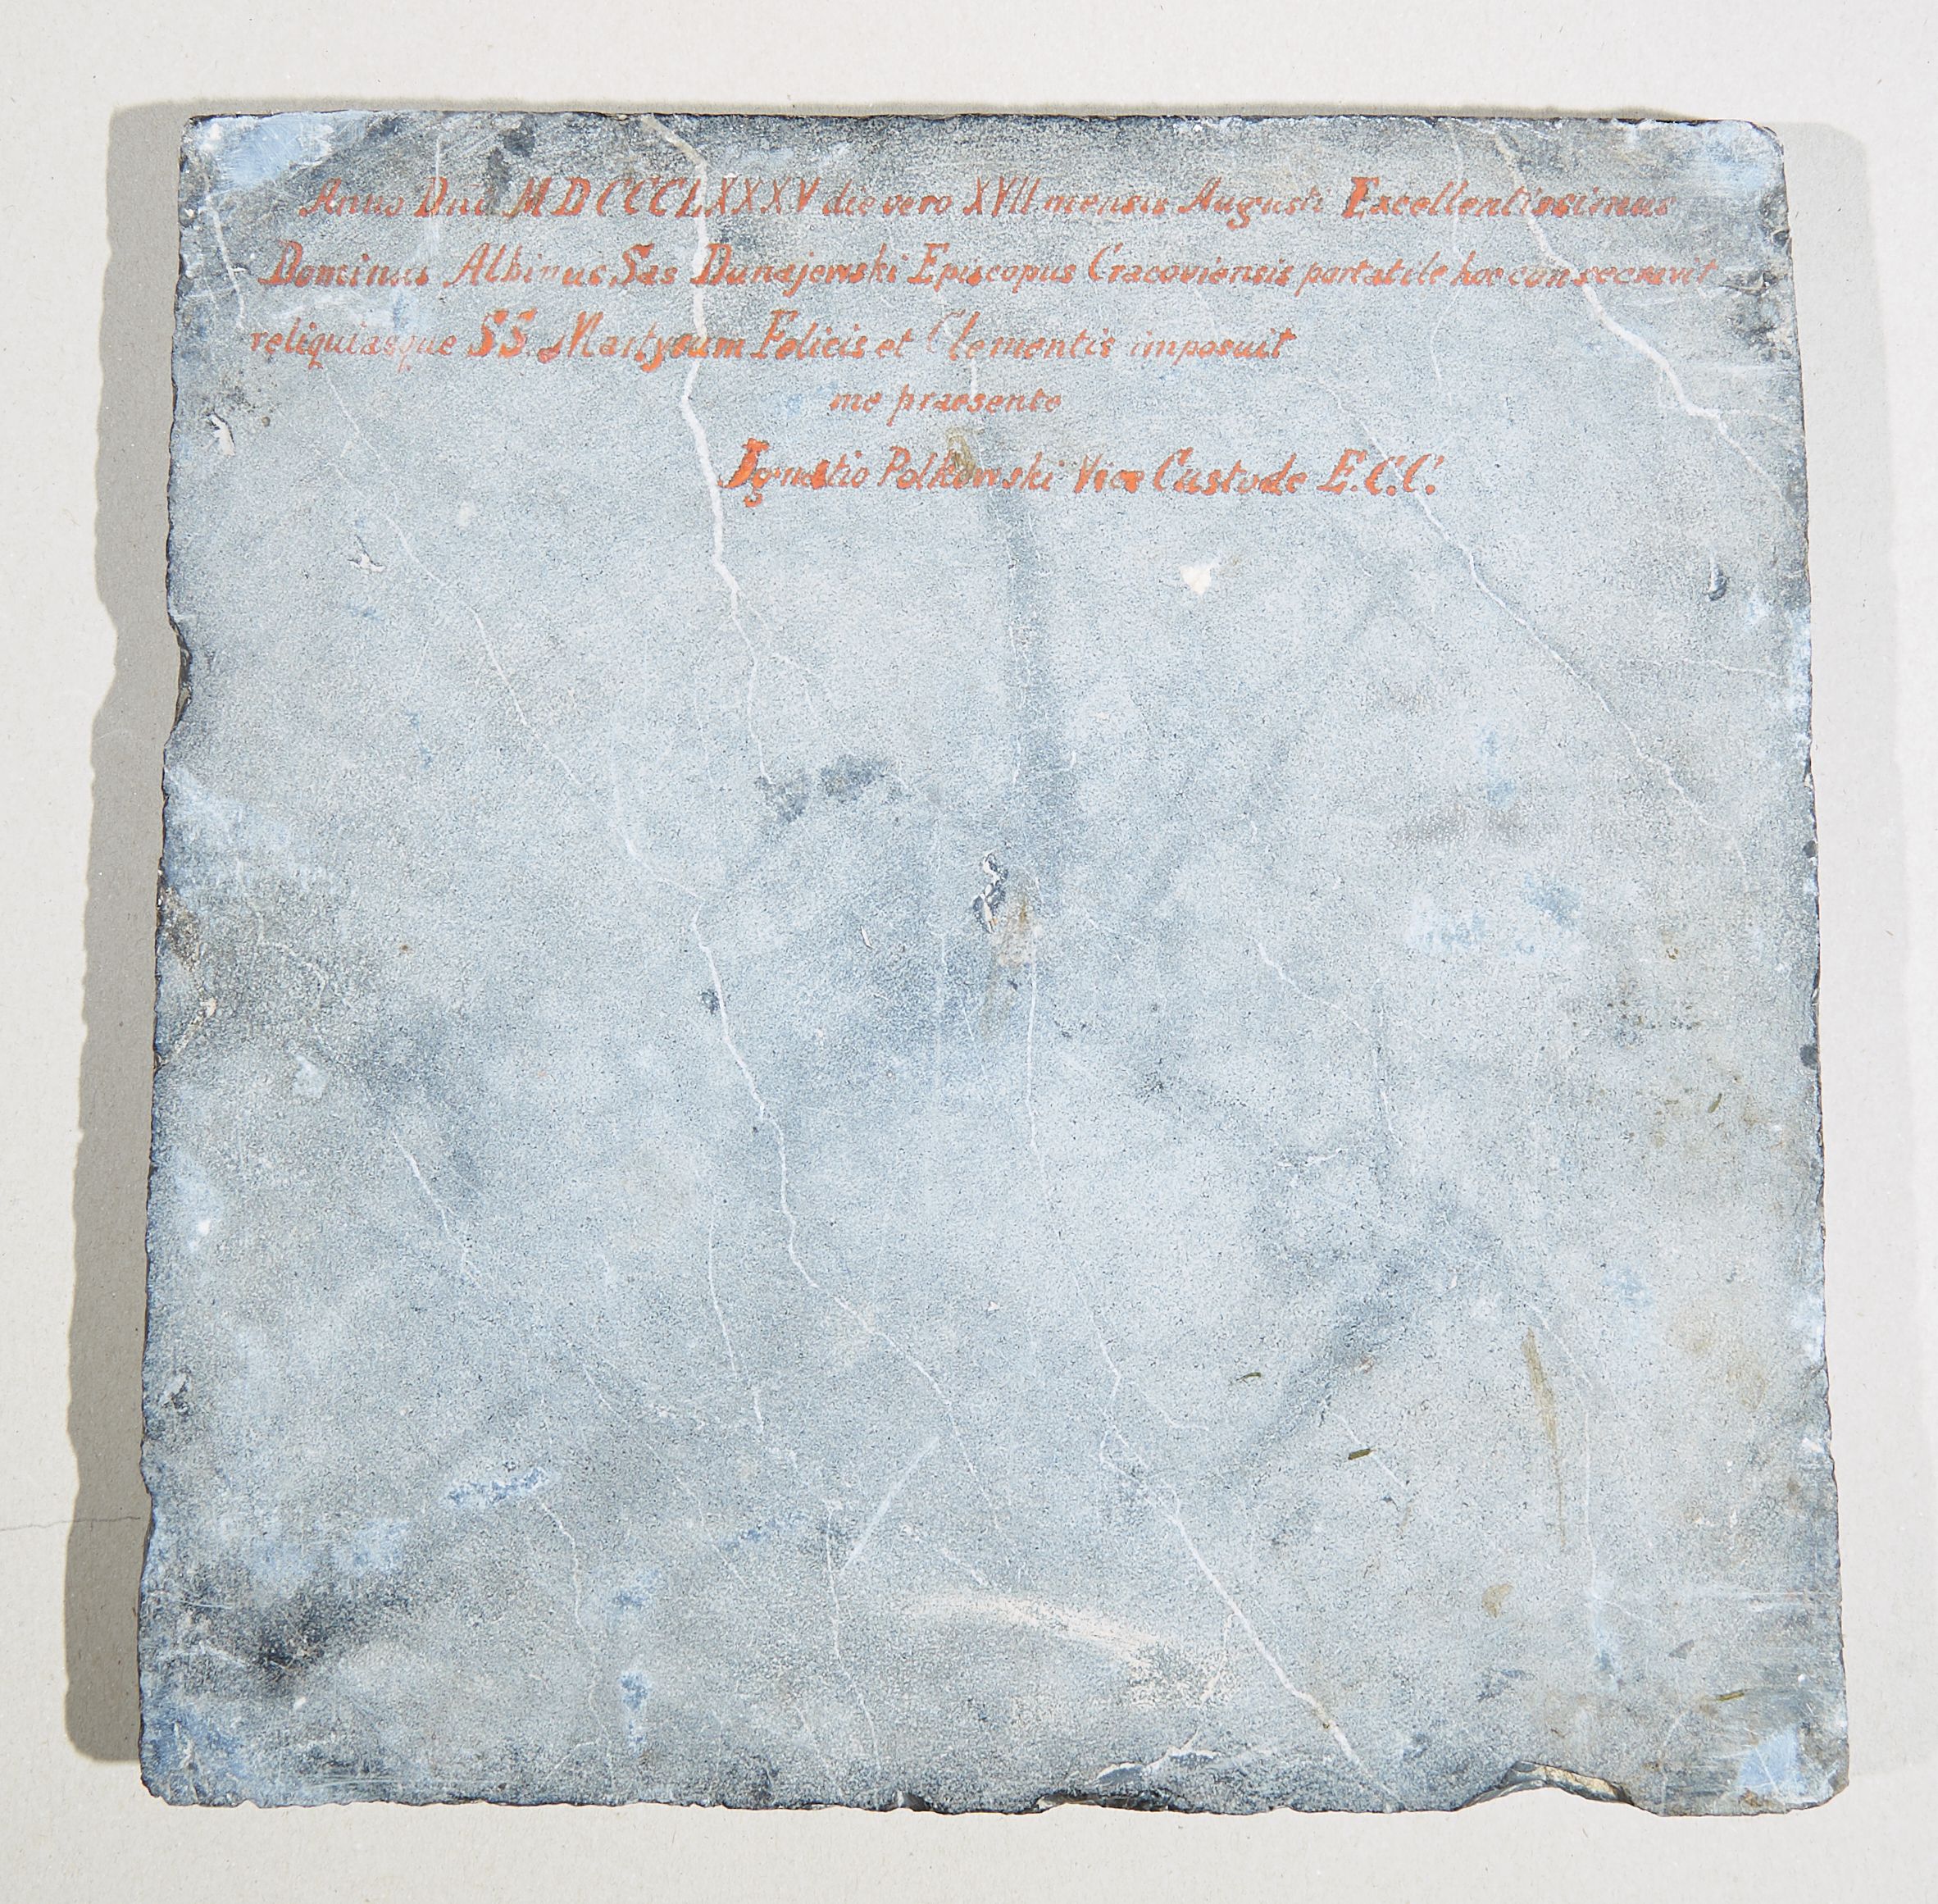 Anno Dni MDCCCLXXXV die vero XVII mensis Augusti Excellentissimus
Dominus Albinus Sas Dunajewski Episcopus Cracoviensis portatile hoc consecravit
reliquiasque SS. Martyrum Felicis et Clementis imposuit
me praesente
Ignatio Polkowski Vice Custode E.C.C.